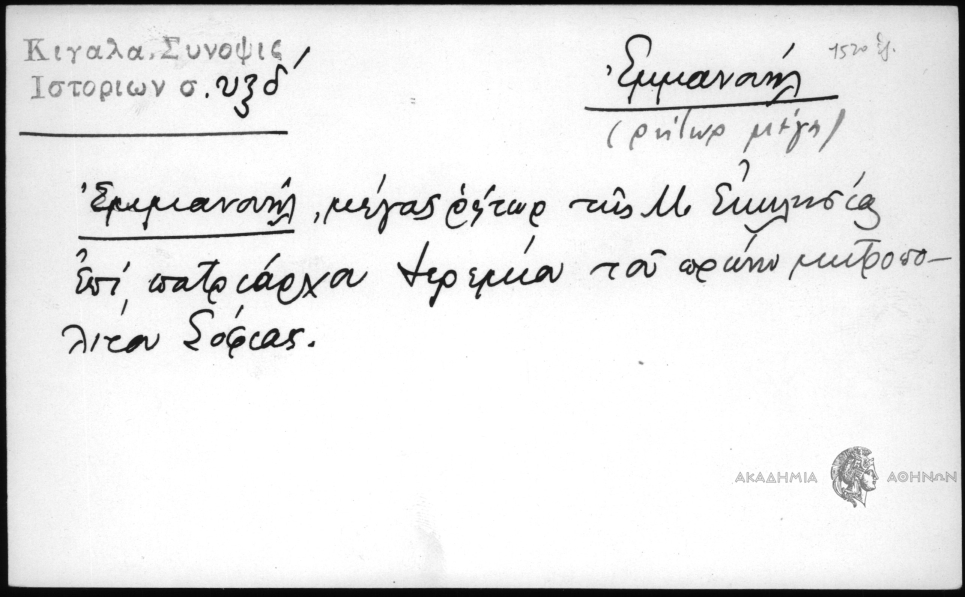 Κιγαλα, Συνοψις
Ιστοριων σ. υξδ´
Ἐμμανουήλ
1520 ἑξ.
(ρήτωρ μέγας)
Ἐμμανουήλ, μέγας ῥήτωρ τῆς Μ. Ἐκκλησίας
ἐπί πατριάρχου Ἱερεμίου τοῦ πρώην μητροπο-
λίτου Σόφιας.
ΑΚΑΔΗΜΙΑ ΑΘΗΝΩΝ